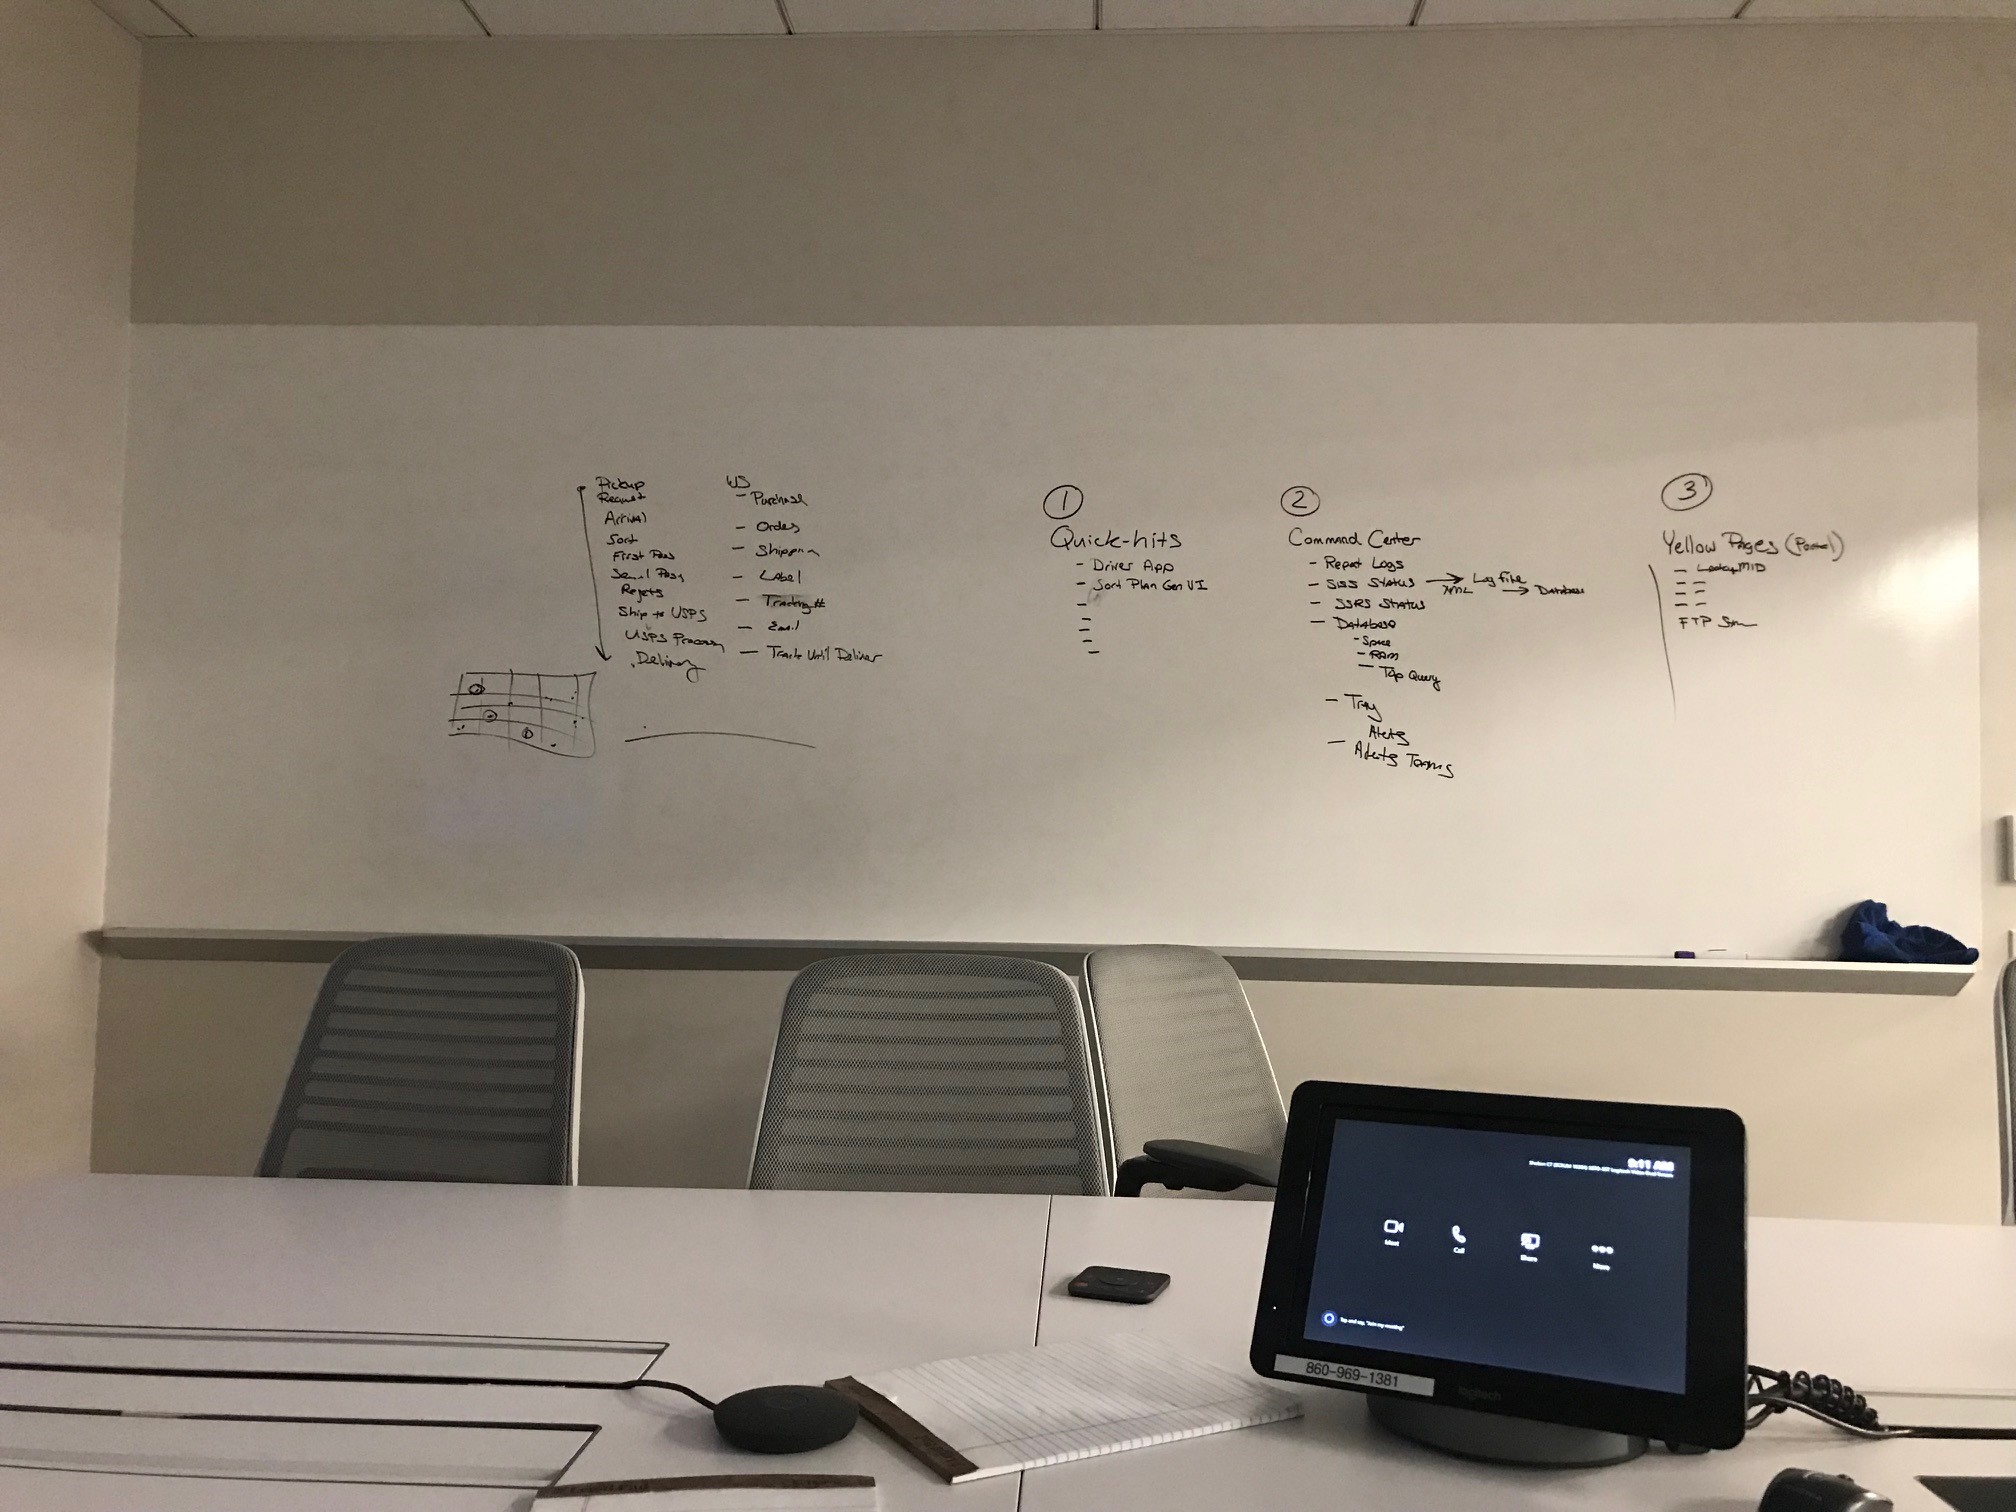 Pickup
Request
Arrival
Sort
First Pass
Rejects
Ship to USPS
USPS Process
Delivery
WS
- Purchase
- Order
- Shipping
- Label
- Tracking #
- Email
- Track Until Deliver
1
Quick-hits
- Driver App
- Sort Plan Gen UI
-
-
-
-
2
Command Center
- Report Logs
- SSIS Status → Log file
XML → Database
- SSRS Status
- Database
- Space
- RAM
- Top Query
- Tray
Alerts
- Alerts Teams
3
Yellow Pages (Portal)
- Lookup MID
- -
- -
- -
FTP
9:11 AM
Meet
Call
Share
More
Tap and say, "Join my meeting"
860-969-1381
logitech